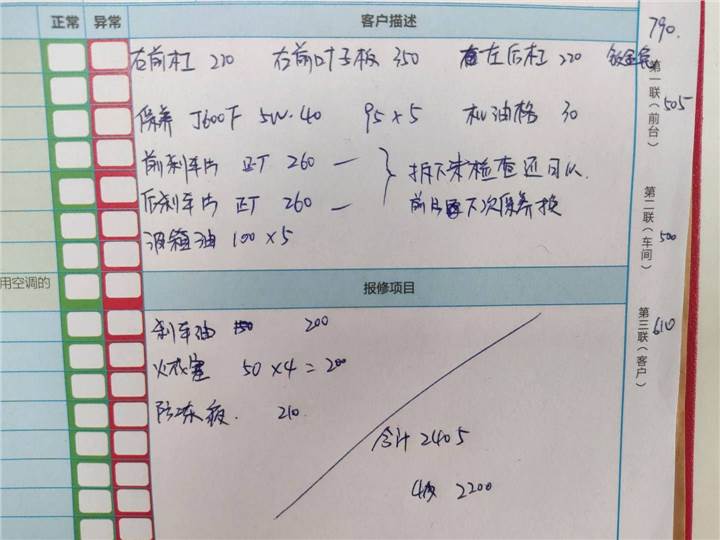 正常 异常 客户描述
790.
右前杠 220 右前叶子板 350 左后杠 220 钣金
第一联（前台）
505
保养 J600F 5W-40 95×5 机油格 30
前刹车片 正厂 260 —
后刹车片 正厂 260 —
拆下来检查还可以.
前后下次保养换
波箱油 100×5
第二联（车间）
500
用空调的
报修项目
第三联（客户）
610
刹车油 200
火花塞 50×4=200
防冻液. 210.
合计 2405
收 2200